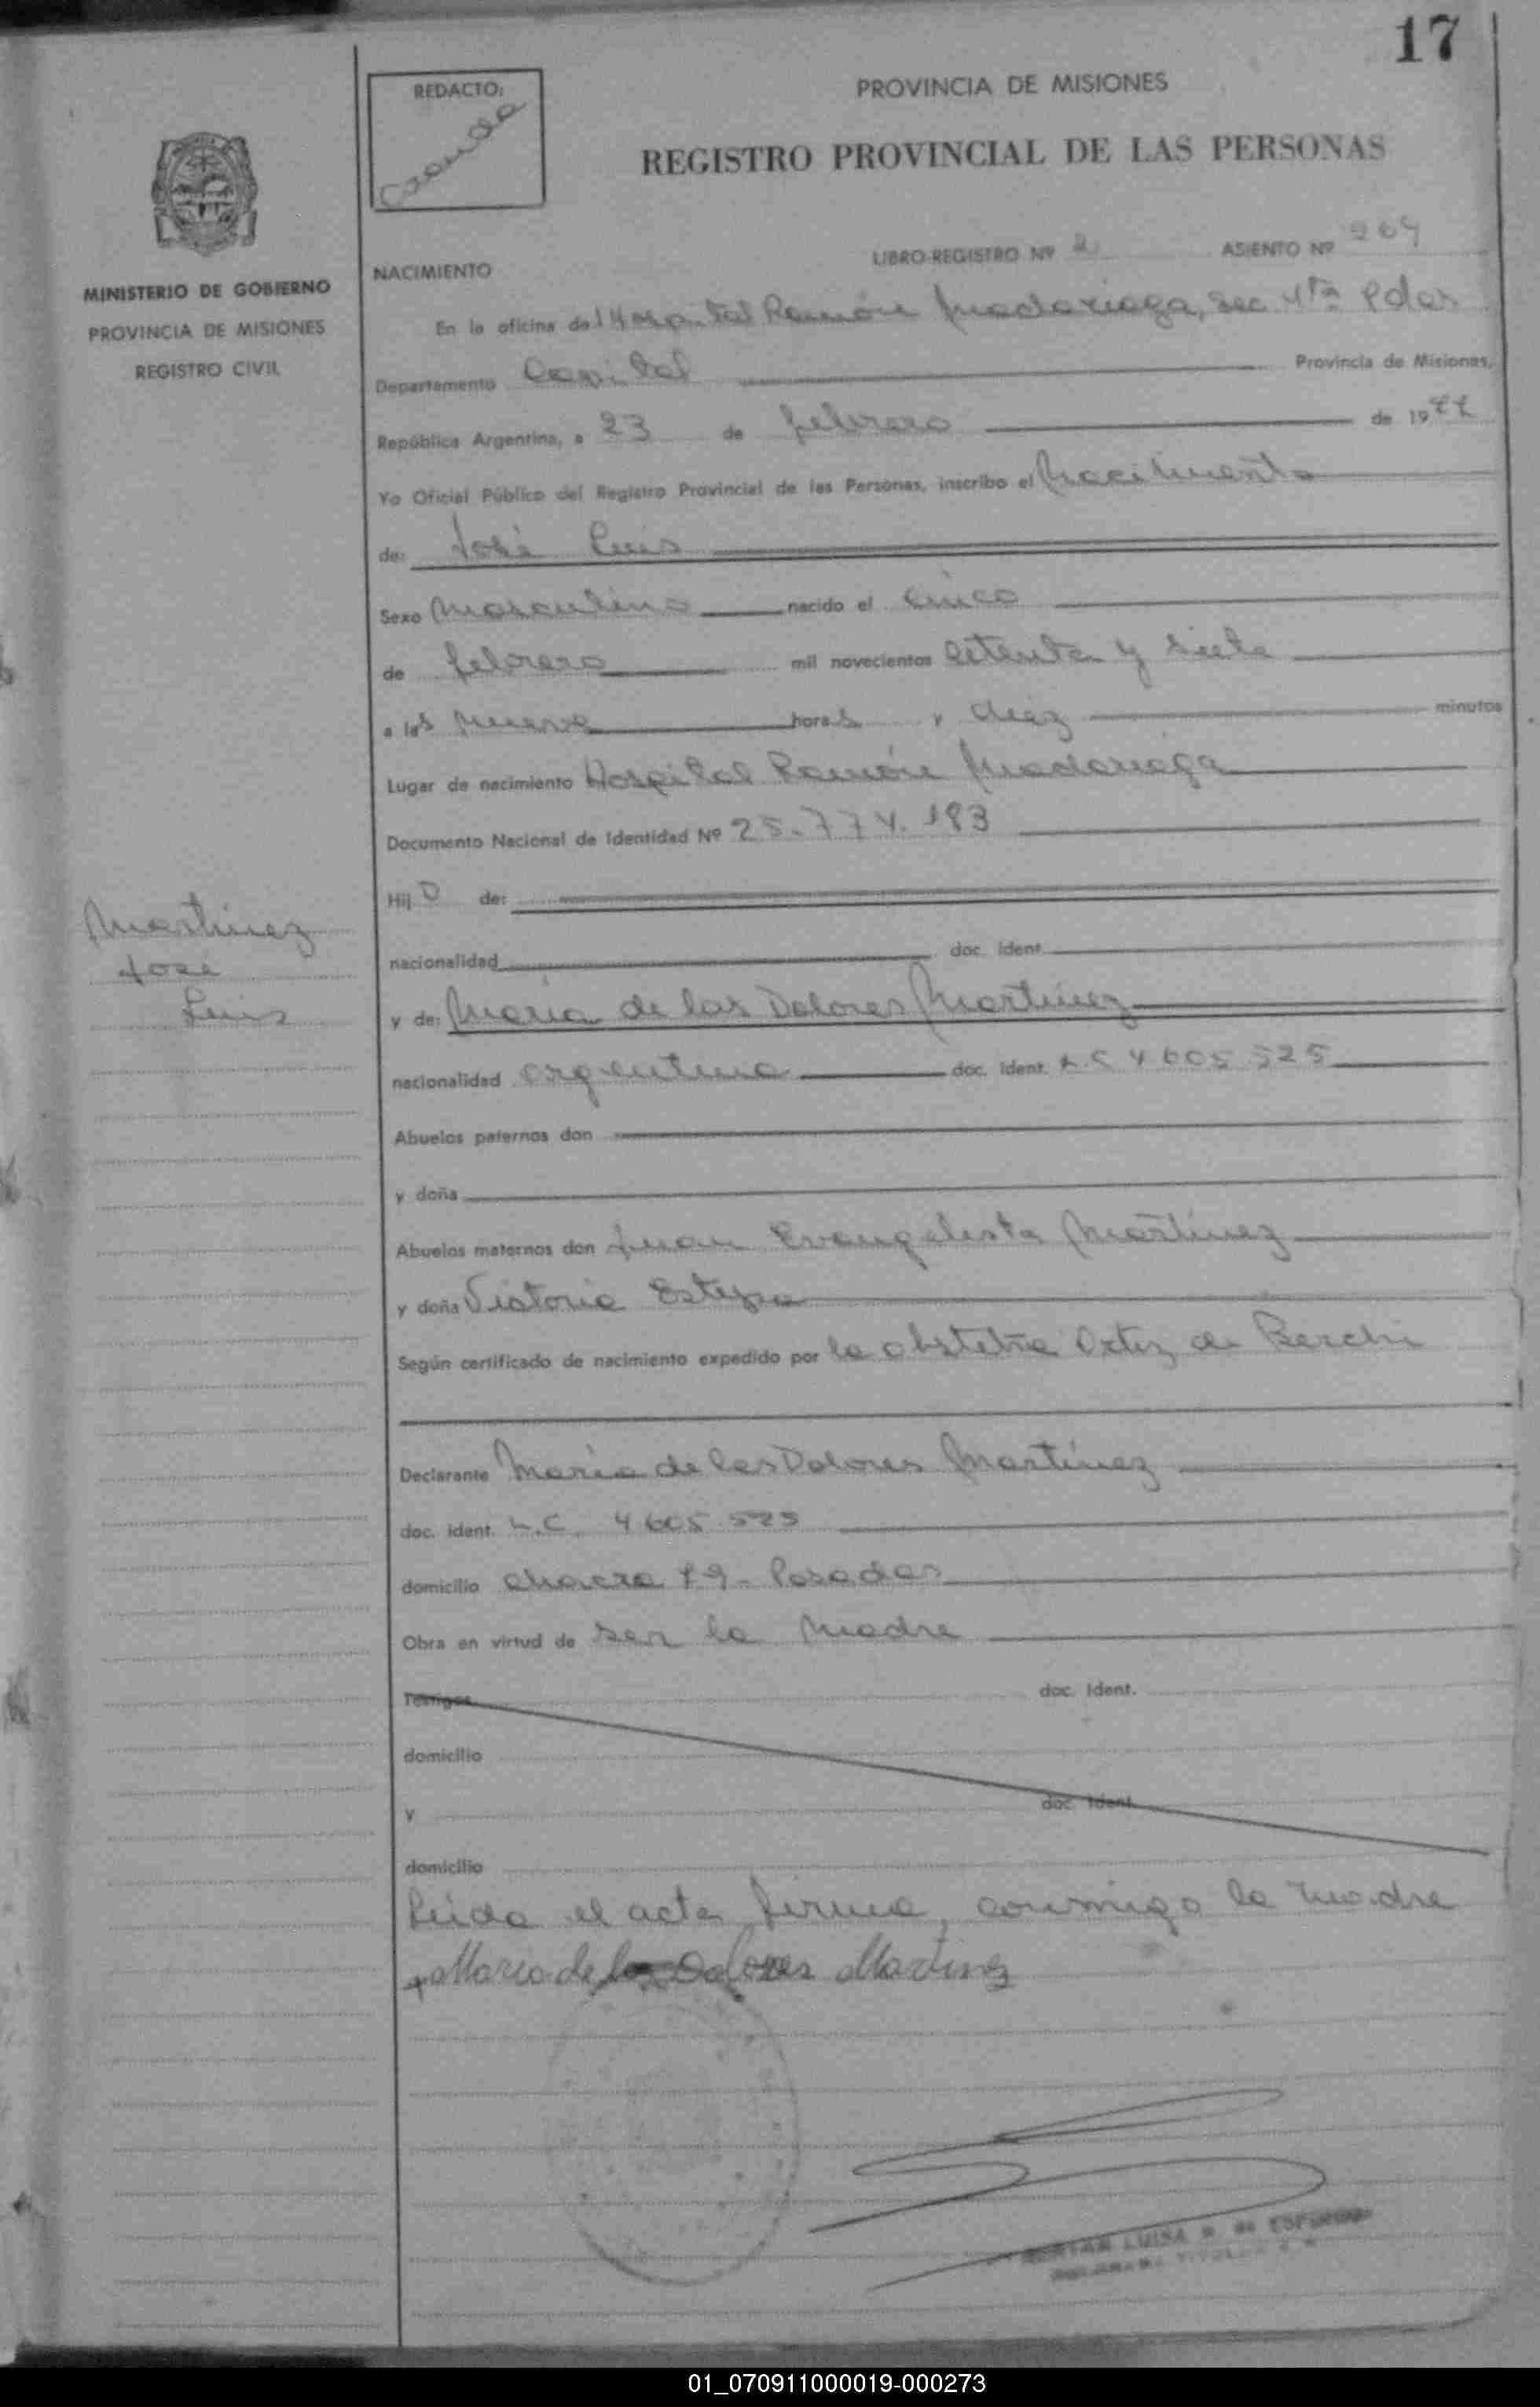 17
REDACTO:
PROVINCIA DE MISIONES
REGISTRO PROVINCIAL DE LAS PERSONAS
MINISTERIO DE GOBIERNO
PROVINCIA DE MISIONES
REGISTRO CIVIL
LIBRO-REGISTRO Nº 2 ASIENTO Nº 264
NACIMIENTO
En la oficina del Hospital Ramón Madariaga, sec. 4ta Pdas
Departamento Capital Provincia de Misiones,
República Argentina, a 23 de febrero de 1977
Yo Oficial Público del Registro Provincial de las Personas, inscribo el Nacimiento
de: José Luis
Sexo Masculino nacido el cinco
de febrero mil novecientos setenta y siete
a las nueve horas y diez minutos
Lugar de nacimiento Hospital Ramón Madariaga
Documento Nacional de Identidad Nº 25.774.183
Hijo de:
nacionalidad doc. Ident.
Martinez
José
Luis
y de: María de las Dolores Martinez
nacionalidad argentina doc. Ident. L.C 4.605.525
Abuelos paternos don
y doña
Abuelos maternos don Juan Evangelista Martínez
y doña Victoria
Según certificado de nacimiento expedido por la obstetra Ortiz de
Declarante María de las Dolores Martínez
doc. Ident. L.C. 4.605.525
domicilio chacra 79 - Posadas
Obra en virtud de ser la madre
Testigos doc. Ident.
domicilio
y doc. Ident.
domicilio
Leída el acta firma conmigo la madre
Maria de las Dolores Martinez
LUISA
01_070911000019-000273